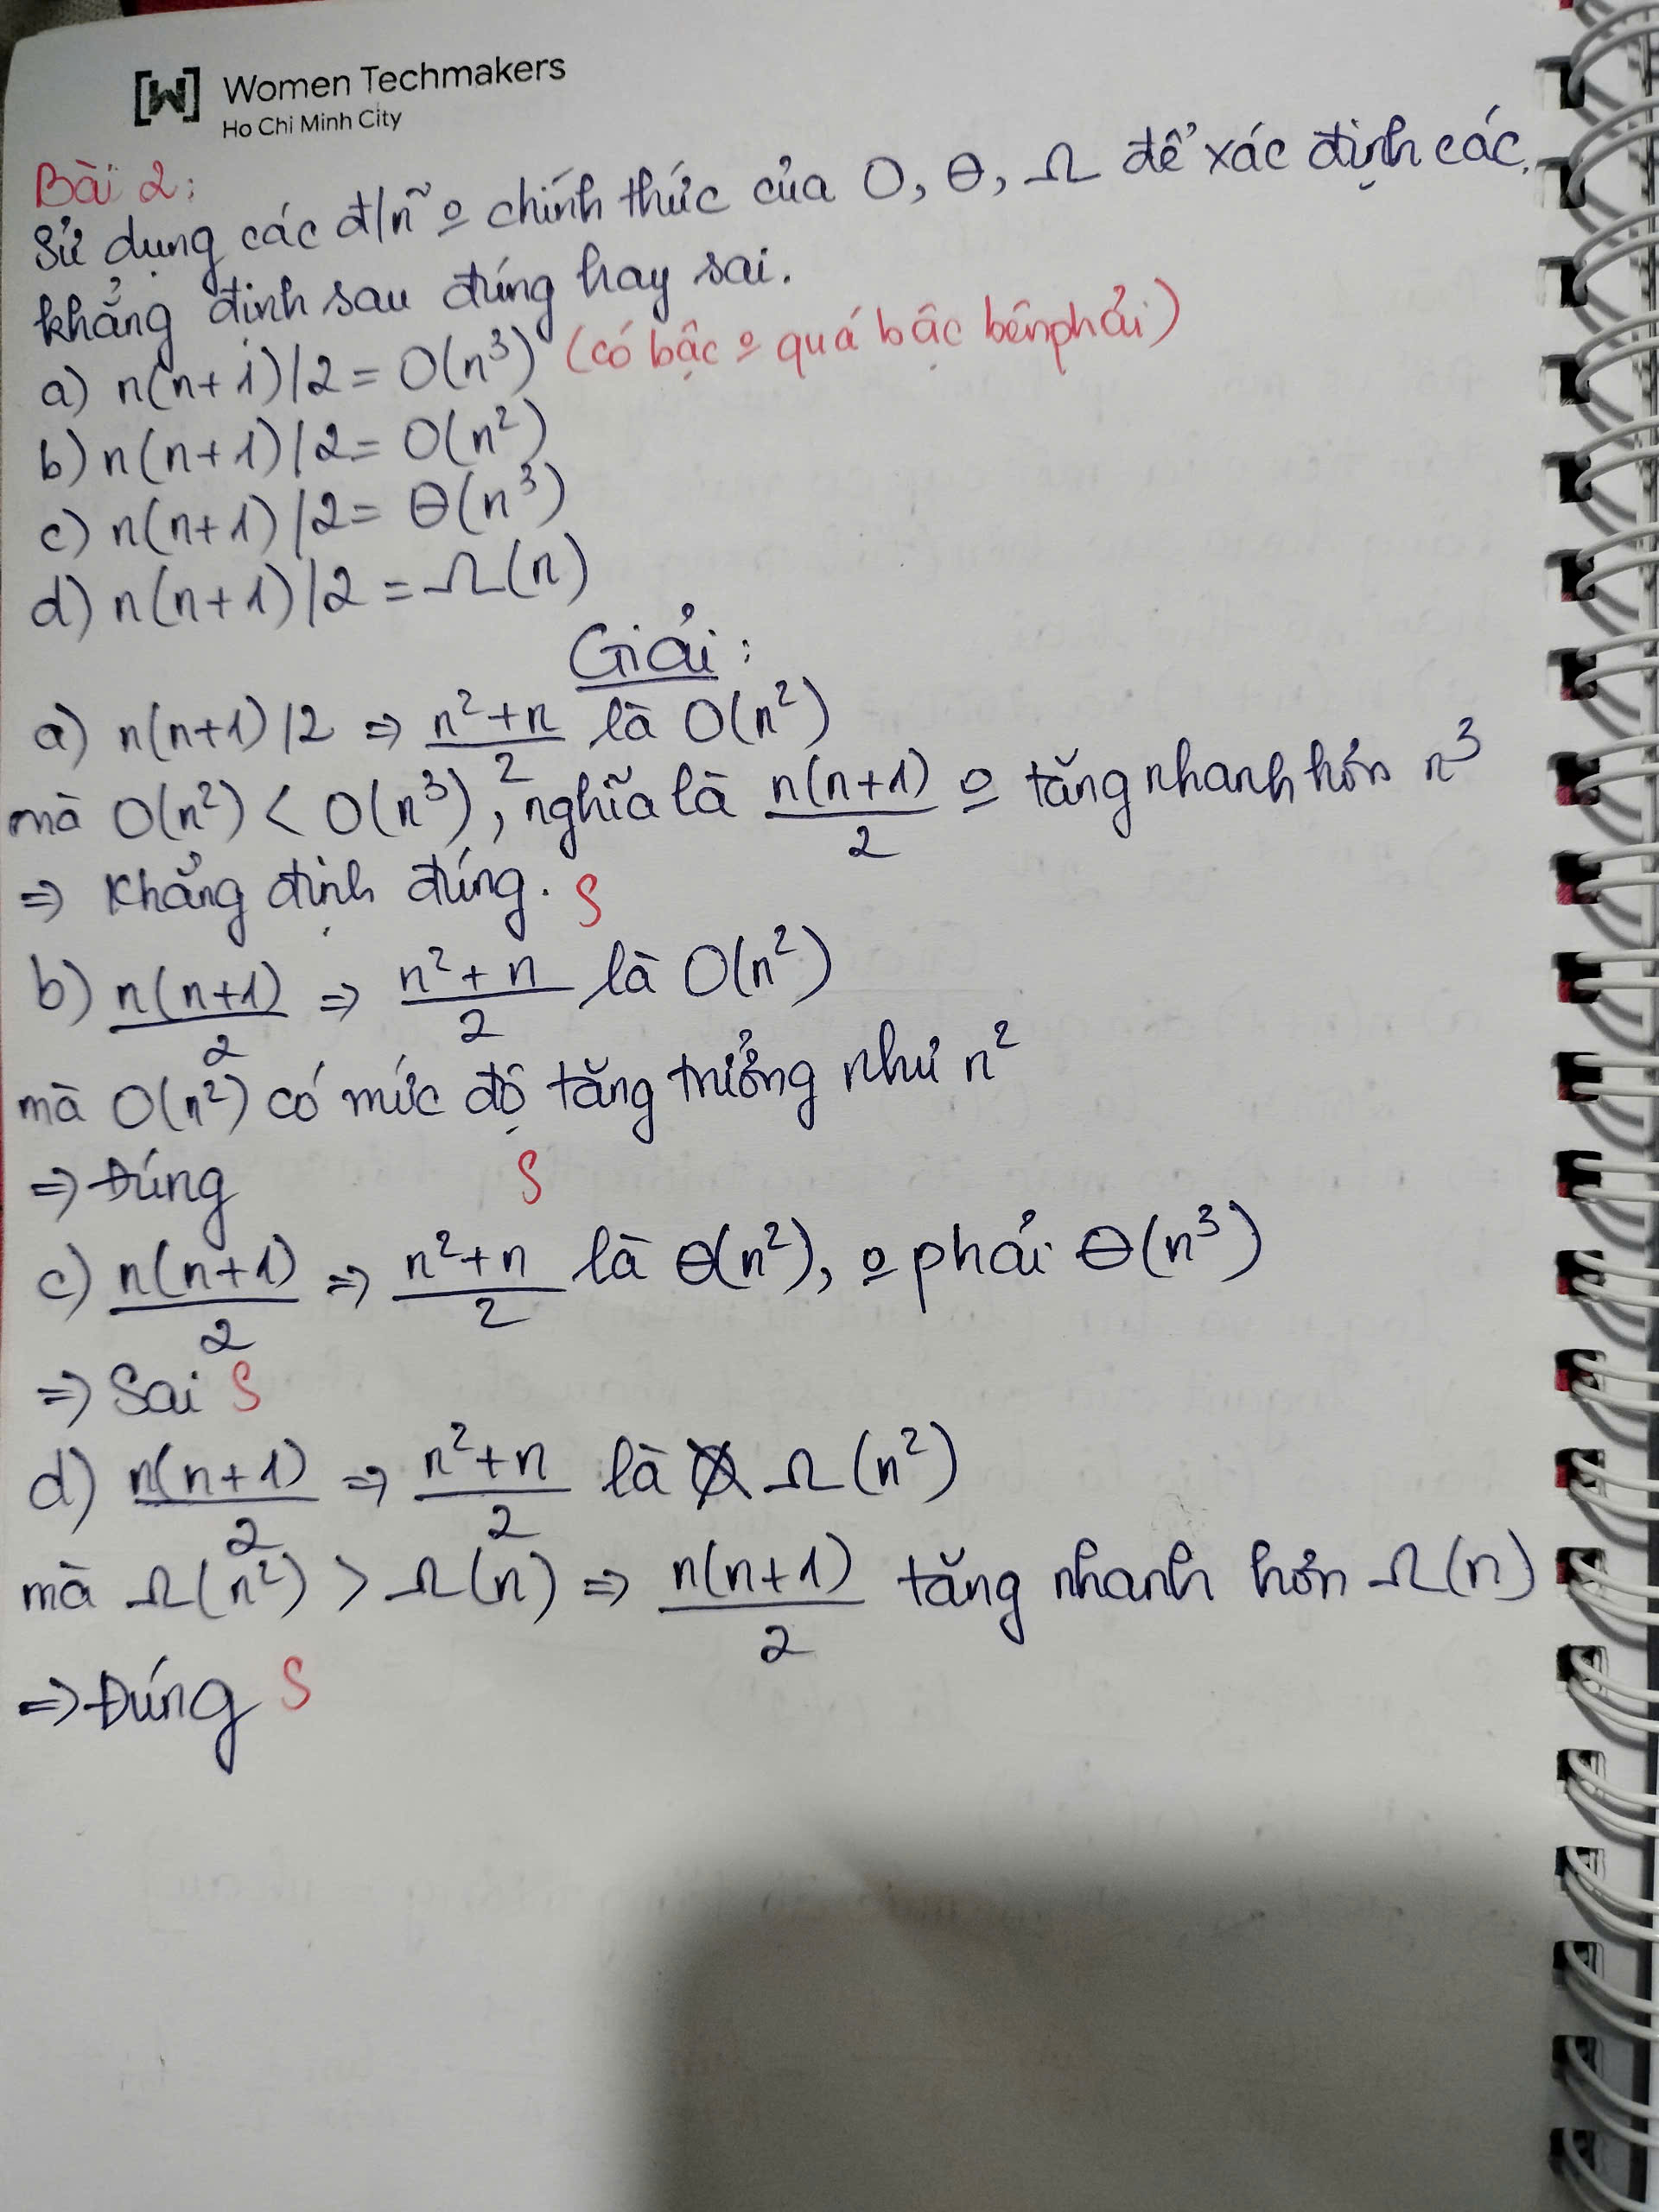 [W] Women Techmakers
Ho Chi Minh City
Bài 2:
Sử dụng các đ/n~ o chính thức của O, Θ, Ω để xác định các
khẳng định sau đúng hay sai.
a) n(n+1)/2 = O(n³) (có bậc o quá bậc bên phải)
b) n(n+1)/2 = O(n²)
c) n(n+1)/2 = Θ(n³)
d) n(n+1)/2 = Ω(n)
Giải:
a) n(n+1)/2 => (n²+n)/2 là O(n²)
mà O(n²) < O(n³), nghĩa là n(n+1)/2 o tăng nhanh hơn n³
=> Khẳng định đúng. S
b) n(n+1)/2 => (n²+n)/2 là O(n²)
mà O(n²) có mức độ tăng trưởng như n²
=> Đúng S
c) n(n+1)/2 => (n²+n)/2 là Θ(n²), o phải Θ(n³)
=> Sai S
d) n(n+1)/2 => (n²+n)/2 là Ω(n²)
mà Ω(n²) > Ω(n) => n(n+1)/2 tăng nhanh hơn Ω(n)
=> Đúng S